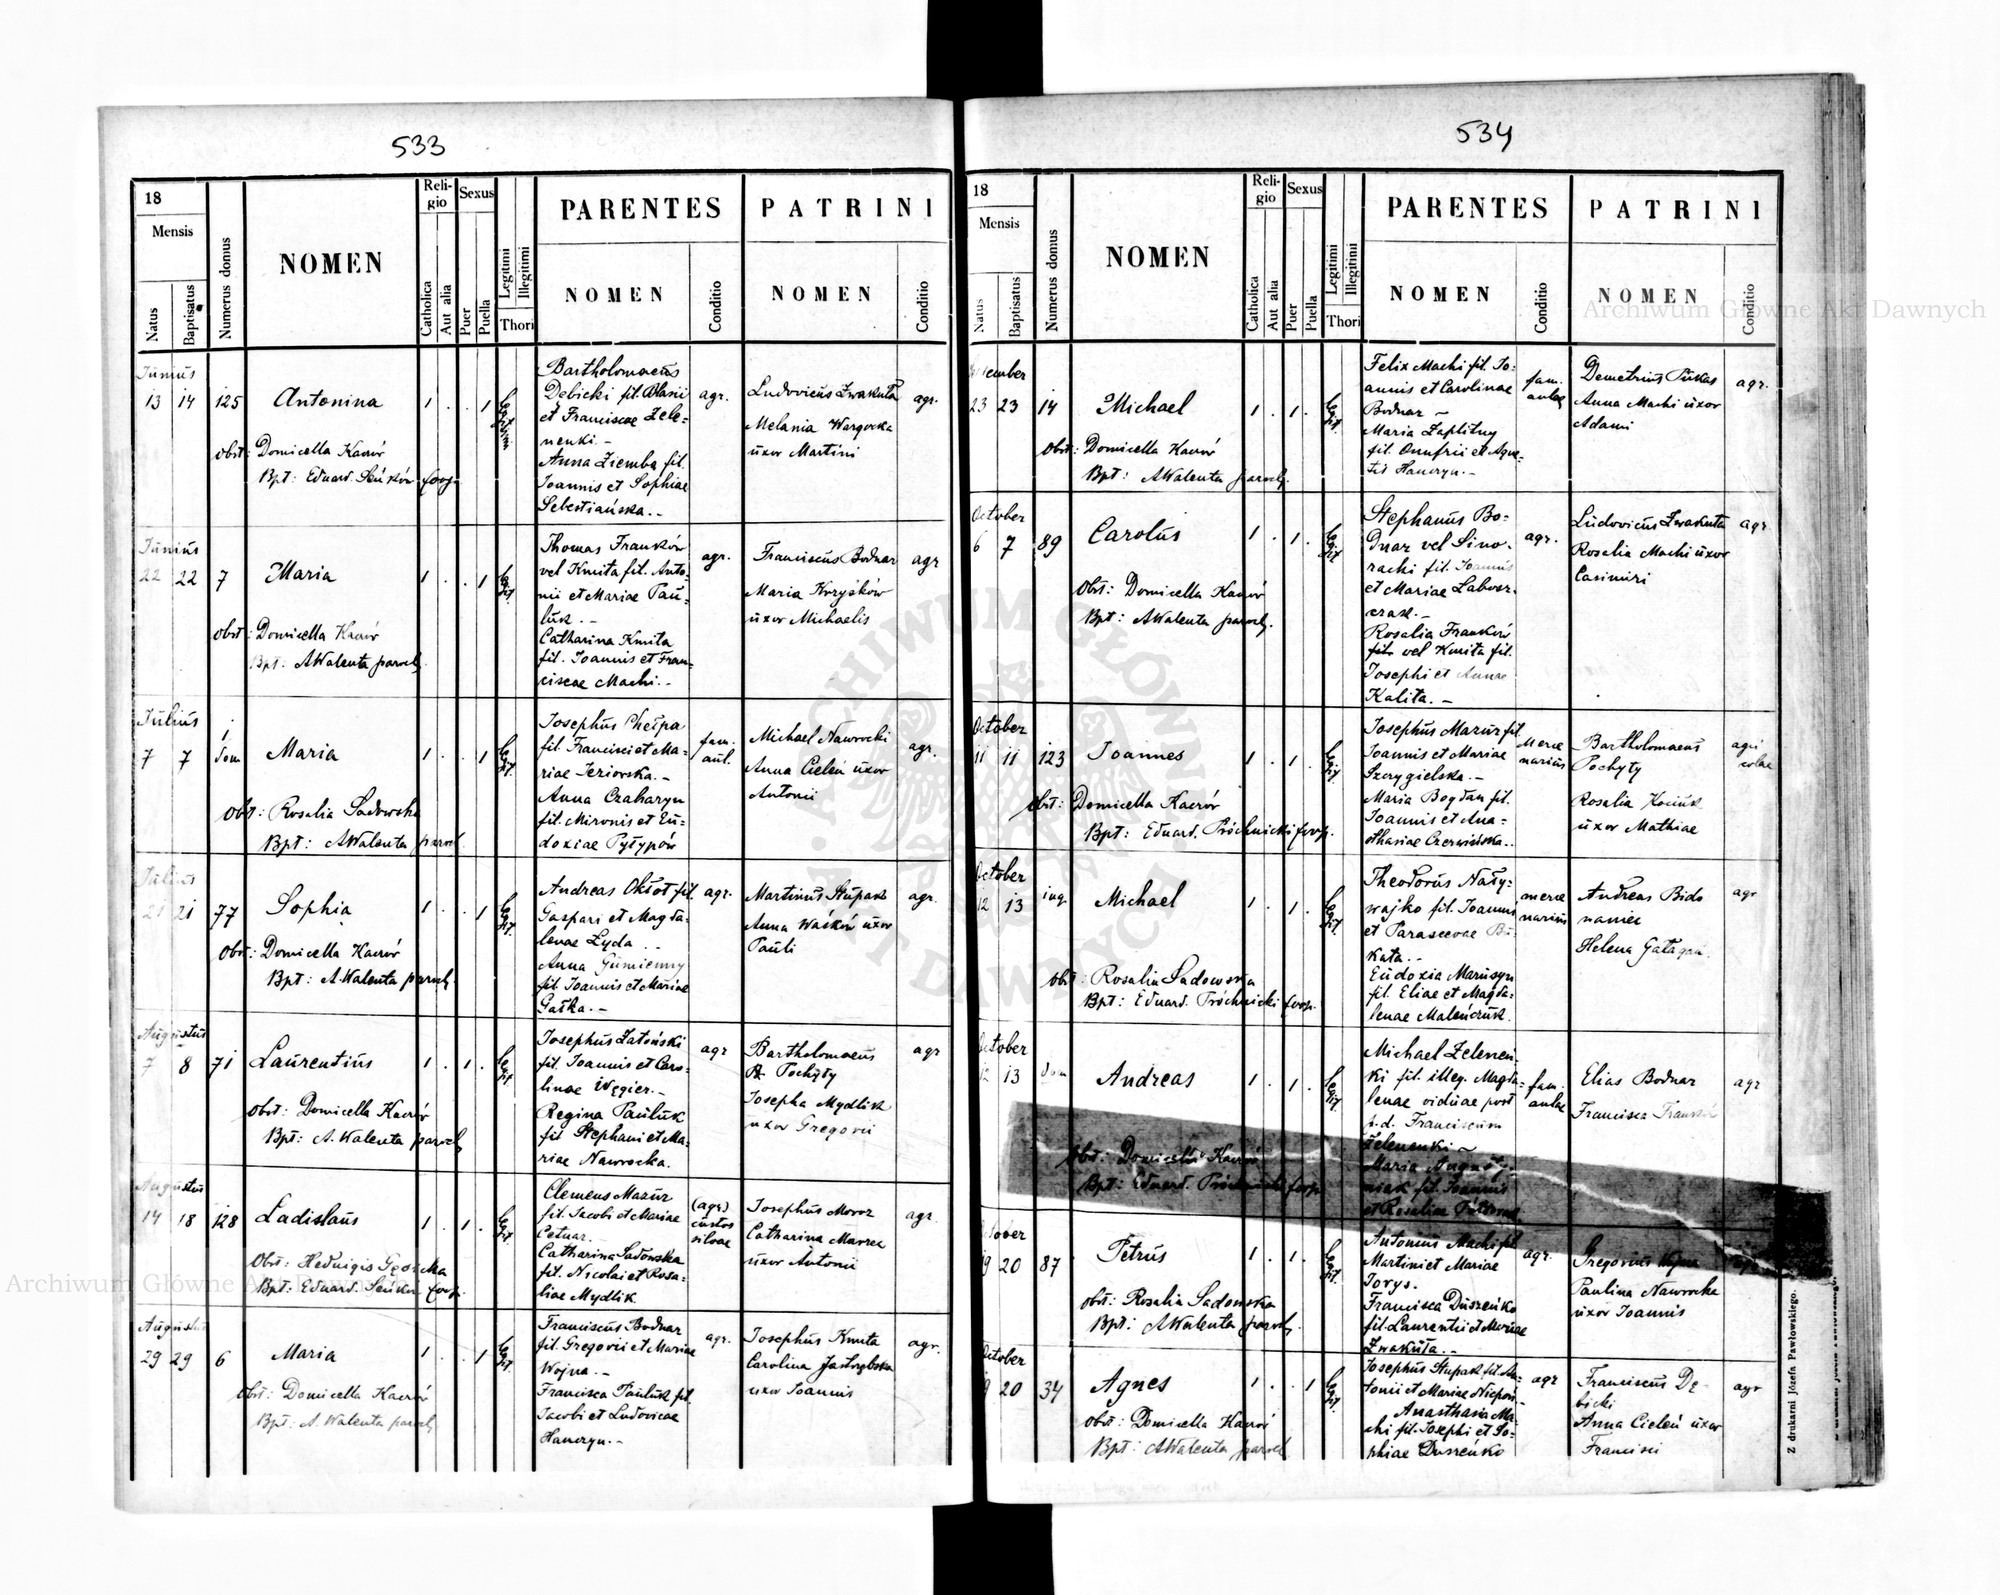 533
18
Mensis
Natus
Baptisatus
Numerus domus
NOMEN
Religio
Catholica
Aut alia
Sexus
Puer
Puella
Legitimi
Illegitimi
Thori
PARENTES
NOMEN
Conditio
PATRINI
NOMEN
Conditio
Junius
13 14 125 Antonina 1 . . 1
obst: Domicella Kacrów
Bpt: Eduard. Seńków coop.
Bartholomaeus
Dębicki fil. Blasii
et Franciscae Zele=
nenki. –
Anna Ziemba fil.
Joannis et Sophiae
Sebestiańska. –
agr.
Ludovicus Zwakuta
Melania Wargocka
uxor Martini
agr.
Junius
22 22 7 Maria 1 . . 1
obst: Domicella Kacrów
Bpt: A Walenta paroch.
Thomas Franków
vel Kmita fil. Anto=
nii et Mariae Pau=
luk. –
Catharina Kmita
fil. Joannis et Fran=
ciscae Machi. –
agr.
Franciscus Bodnar
Maria Krzyśków
uxor Michaelis
agr
Julius
7 7 Dom Maria 1 . . 1
obst: Rosalia Sadowska
Bpt: A Walenta paroch.
Josephus Cheipa
fil. Francisci et Ma=
riae Jeziorska. –
Anna Czaharyn
fil. Mironis et Eu=
doxiae Pyłypów
fam.
aul.
Michael Nawrocki
Anna Cieleń uxor
Antonii
agr.
Julius
21 21 77 Sophia 1 . . 1
obst: Domicella Kacrów
Bpt: A. Walenta paroch.
Andreas Okłot fil.
Gaspari et Magda=
lenae Łyda . –
Anna Gumienny
fil. Joannis et Mariae
Gałka. –
agr.
Martinus Stupak
Anna Waśków uxor
Pauli
agr.
Augustus
7 8 71 Laurentius 1 . 1 .
obst: Domicella Kacrów
Bpt: A. Walenta paroch
Josephus Zatoński
fil. Joannis et Caro=
linae Węgier. –
Regina Pauluk
fil Stephani et Ma=
riae Nawrocka.
agr
Bartholomaeus
Pochyty
Josepha Mydlik
uxor Gregorii
agr
Augustus
14 18 128 Ladislaus 1 . 1 .
Obst: Hedvigis
Bpt: Eduard. Seńków coop.
Clemens Mazur
fil. Jacobi et Mariae
Cetnar. –
Catharina Sadowska
fil. Nicolai et Rosa=
liae Mydlik.
(agr.)
custos
silvae
Josephus Moroz
Catharina
uxor Antonii
agr.
Augustus
29 29 6 Maria 1 . . 1
obst: Domicella Kacrów
Bpt: A. Walenta paroch
Franciscus Bodnar
fil. Gregorii et Mariae
Wojna. –
Francisca Pauluk fil.
Jacobi et Ludovicae
Hawryn. –
agr.
Josephus Kmita
Carolina Jastrzębska
uxor Joannis
agr.
534
18
Mensis
Natus
Baptisatus
Numerus domus
NOMEN
Religio
Catholica
Aut alia
Sexus
Puer
Puella
Legitimi
Illegitimi
Thori
PARENTES
NOMEN
Conditio
PATRINI
NOMEN
Conditio
23 23 14 Michael 1 . 1 .
Obst: Domicella Kacrów
Bpt: A Walenta paroch.
Felix Machi fil. Jo=
annis et Carolinae
Bodnar –
Maria Zaplitny
fil. Onufrii et Agne=
tis Hawryn. –
fam.
aulae
Demetrius Pukas
Anna Machi uxor
Adami
agr.
October
6 7 89 Carolus 1 . 1 .
Obst: Domicella Kacrów
Bpt: A Walenta paroch.
Stephanus Bo=
dnar vel Sino=
racki fil. Joannis
et Mariae
Rosalia Franków
vel Kmita fil.
Josephi et Annae
Kalita. –
agr.
Ludovicus Zwakuta
Rosalia Machi uxor
Casimiri
agr
October
11 11 123 Joannes 1 . 1 .
obst: Domicella Kacrów
Bpt: Eduard. Próchnicki coop.
Josephus Mazur fil.
Joannis et Mariae
Szczygielska. –
Maria Bogdan fil.
Joannis et Ana=
sthasiae Czerwińska. .
merce
narius
Bartholomaeus
Pochyty
Rosalia Kociuk
uxor Mathiae
agri
colae
October
12 13 inq Michael 1 . 1 .
obst: Rosalia Sadowska
Bpt: Eduard. Próchnicki coop.
Theodorus Nały=
wajko fil. Joannis
et Parascevae Bu=
kata. –
Eudoxia Marusyn
fil. Eliae et Magda=
lenae Maleńczuk.
merce
narius
Andreas Bido
naniec
Helena
agr
October
12 13 Dom Andreas 1 . 1 .
obst: Domicella Kacrów
Bpt: Eduard. Próchnicki coop.
Michael Zelenen=
ki fil. illeg. Magda=
lenae viduae post
p. d. Franciscum
Zelenenki –
Maria
fil. Joannis
et Rosaliae
fam.
aulae
Elias Bodnar
Francisca Franków
agr
October
19 20 87 Petrus 1 . 1 .
obst: Rosalia Sadowska
Bpt: A Walenta paroch.
Antonius Machi fil
Martini et Mariae
Jorys.
Francisca Duszeńko
fil. Laurentii et Mariae
Zwakuta. –
agr.
Gregorius Wojna
Paulina Nawrocka
uxor Joannis
October
19 20 34 Agnes 1 . . 1
obst: Domicella Kacrów
Bpt: A Walenta paroch
Josephus Stupak fil. An=
tonii et Mariae
Anasthasia Ma=
chi fil. Josephi et So=
phiae Duszeńko
agr
Franciscus Dę=
bicki
Anna Cieleń uxor
Francisci
agr
Z drukarni Józefa Pawłowskiego.
Archiwum Główne Akt Dawnych
Archiwum Główne Akt Dawnych
ARCHIWUM GŁÓWNE AKT DAWNYCH